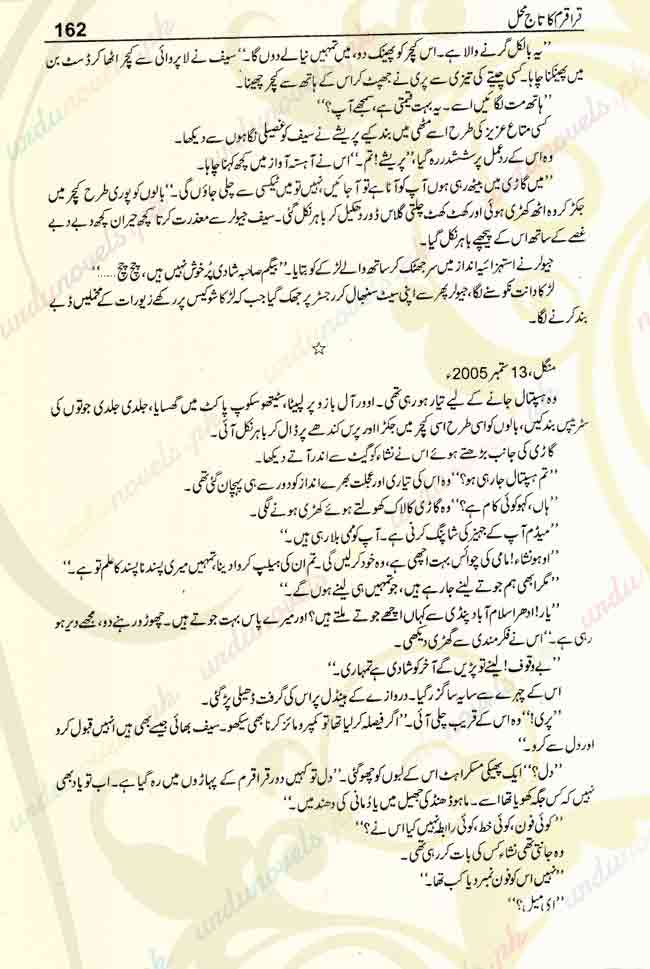 162
قراقرم کا تاج محل
’’یہ بالکل گرنے والا ہے۔ اس کیچر کو پھینک دو، میں تمہیں نیا لے دوں گا۔‘‘ سیف نے لاپروائی سے کیچر اٹھا کر ڈسٹ بن
میں پھینکنا چاہا۔ کسی چیتے کی تیزی سے پری نے جھپٹ کر اس کے ہاتھ سے کیچر چھینا۔
’’ہاتھ مت لگائیں اسے۔ یہ بہت قیمتی ہے، سمجھے آپ؟‘‘
کسی متاع عزیز کی طرح اسے مٹھی میں بند کیے پریشے نے سیف کو غصیلی نگاہوں سے دیکھا۔
وہ اس کے ردعمل پر ششدر رہ گیا، ’’پریشے! تم۔‘‘ اس نے آہستہ آواز میں کچھ کہنا چاہا۔
’’میں گاڑی میں بیٹھ رہی ہوں آپ کو آنا ہے تو آ جائیں، نہیں تو میں ٹیکسی سے چلی جاؤں گی۔‘‘ بالوں کو پوری طرح کیچر میں
جکڑ کر وہ اٹھ کھڑی ہوئی اور کھٹ کھٹ چلتی گلاس ڈور دھکیل کر باہر نکل گئی۔ سیف جیولر سے معذرت کرتا کچھ حیران کچھ دبے دبے
غصے کے ساتھ اس کے پیچھے باہر نکل گیا۔
جیولر نے استہزائیہ انداز میں سر جھٹک کر ساتھ والے لڑکے کو بتایا۔ ’’بیگم صاحبہ شادی پُر خوش نہیں ہیں، چچ چچ.....‘‘
لڑکا دانت نکوسنے لگا، جیولر پھر سے اپنی سیٹ سنبھال کر رجسٹر پر جھک گیا جب کہ لڑکا شوکیس پر رکھے زیورات کے مخملیں ڈبے
بند کرنے لگا۔
☆
منگل، 13 ستمبر 2005ء
وہ ہسپتال جانے کے لیے تیار ہو رہی تھی۔ اوور آل بازو پر لپیٹا، سٹیتھوسکوپ پاکٹ میں گھسایا، جلدی جلدی جوتوں کی
سٹریپس بند کیں، بالوں کو اسی طرح اسی کیچر میں جکڑا اور پرس کندھے پر ڈال کر باہر نکل آئی۔
گاڑی کی جانب بڑھتے ہوئے اس نے نشاء کو گیٹ سے اندر آتے دیکھا۔
’’تم ہسپتال جا رہی ہو؟‘‘ وہ اس کی تیاری اور عجلت بھرے انداز کو دور سے ہی پہچان گئی تھی۔
’’ہاں، کہو کوئی کام ہے؟‘‘ وہ گاڑی کا لاک کھولتے ہوئے کھڑی ہونے لگی۔
’’میڈم آپ کے جہیز کی شاپنگ کرنی ہے۔ آپ کو ممی بلا رہی ہیں۔‘‘
’’اوہو نشاء! مامی کی چوائس بہت اچھی ہے، وہ خود کر لیں گی۔ تم ان کی ہیلپ کروا دینا، تمہیں میری پسند ناپسند کا علم تو ہے۔‘‘
’’مگر ابھی ہم جوتے لینے جا رہے ہیں، جو تمہیں ہی لینے ہوں گے۔‘‘
’’یار! ادھر اسلام آباد پنڈی سے کہاں اچھے جوتے ملتے ہیں؟ اور میرے پاس بہت جوتے ہیں۔ چھوڑو رہنے دو، مجھے دیر ہو
رہی ہے۔‘‘ اس نے فکرمندی سے گھڑی دیکھی۔
’’بے وقوف! لینے تو پڑیں گے آخر کو شادی ہے تمہاری۔‘‘
اس کے چہرے سے سایہ سا گزر گیا۔ دروازے کے ہینڈل پر اس کی گرفت ڈھیلی پڑ گئی۔
’’پری!‘‘ وہ اس کے قریب چلی آئی۔ ’’اگر فیصلہ کر لیا تھا تو کمپرومائز کرنا بھی سیکھو۔ سیف بھائی جیسے بھی ہیں انہیں قبول کرو
اور دل سے کرو۔‘‘
’’دل؟‘‘ ایک پھیکی مسکراہٹ اس کے لبوں کو چھو گئی۔ ’’دل تو کہیں دور قراقرم کے پہاڑوں میں رہ گیا ہے۔ اب تو یاد بھی
نہیں کہ کس جگہ کھویا تھا اسے۔ ماہوڈھنڈ کی جھیل میں یا دُمانی کی دھند میں۔‘‘
’’کوئی فون، کوئی خط، کوئی رابطہ نہیں کیا اس نے؟‘‘
وہ جانتی تھی نشاء کس کی بات کر رہی تھی۔
’’نہیں اس کو فون نمبر دیا کب تھا۔‘‘
’’ای میل؟‘‘
urdunovels.pk